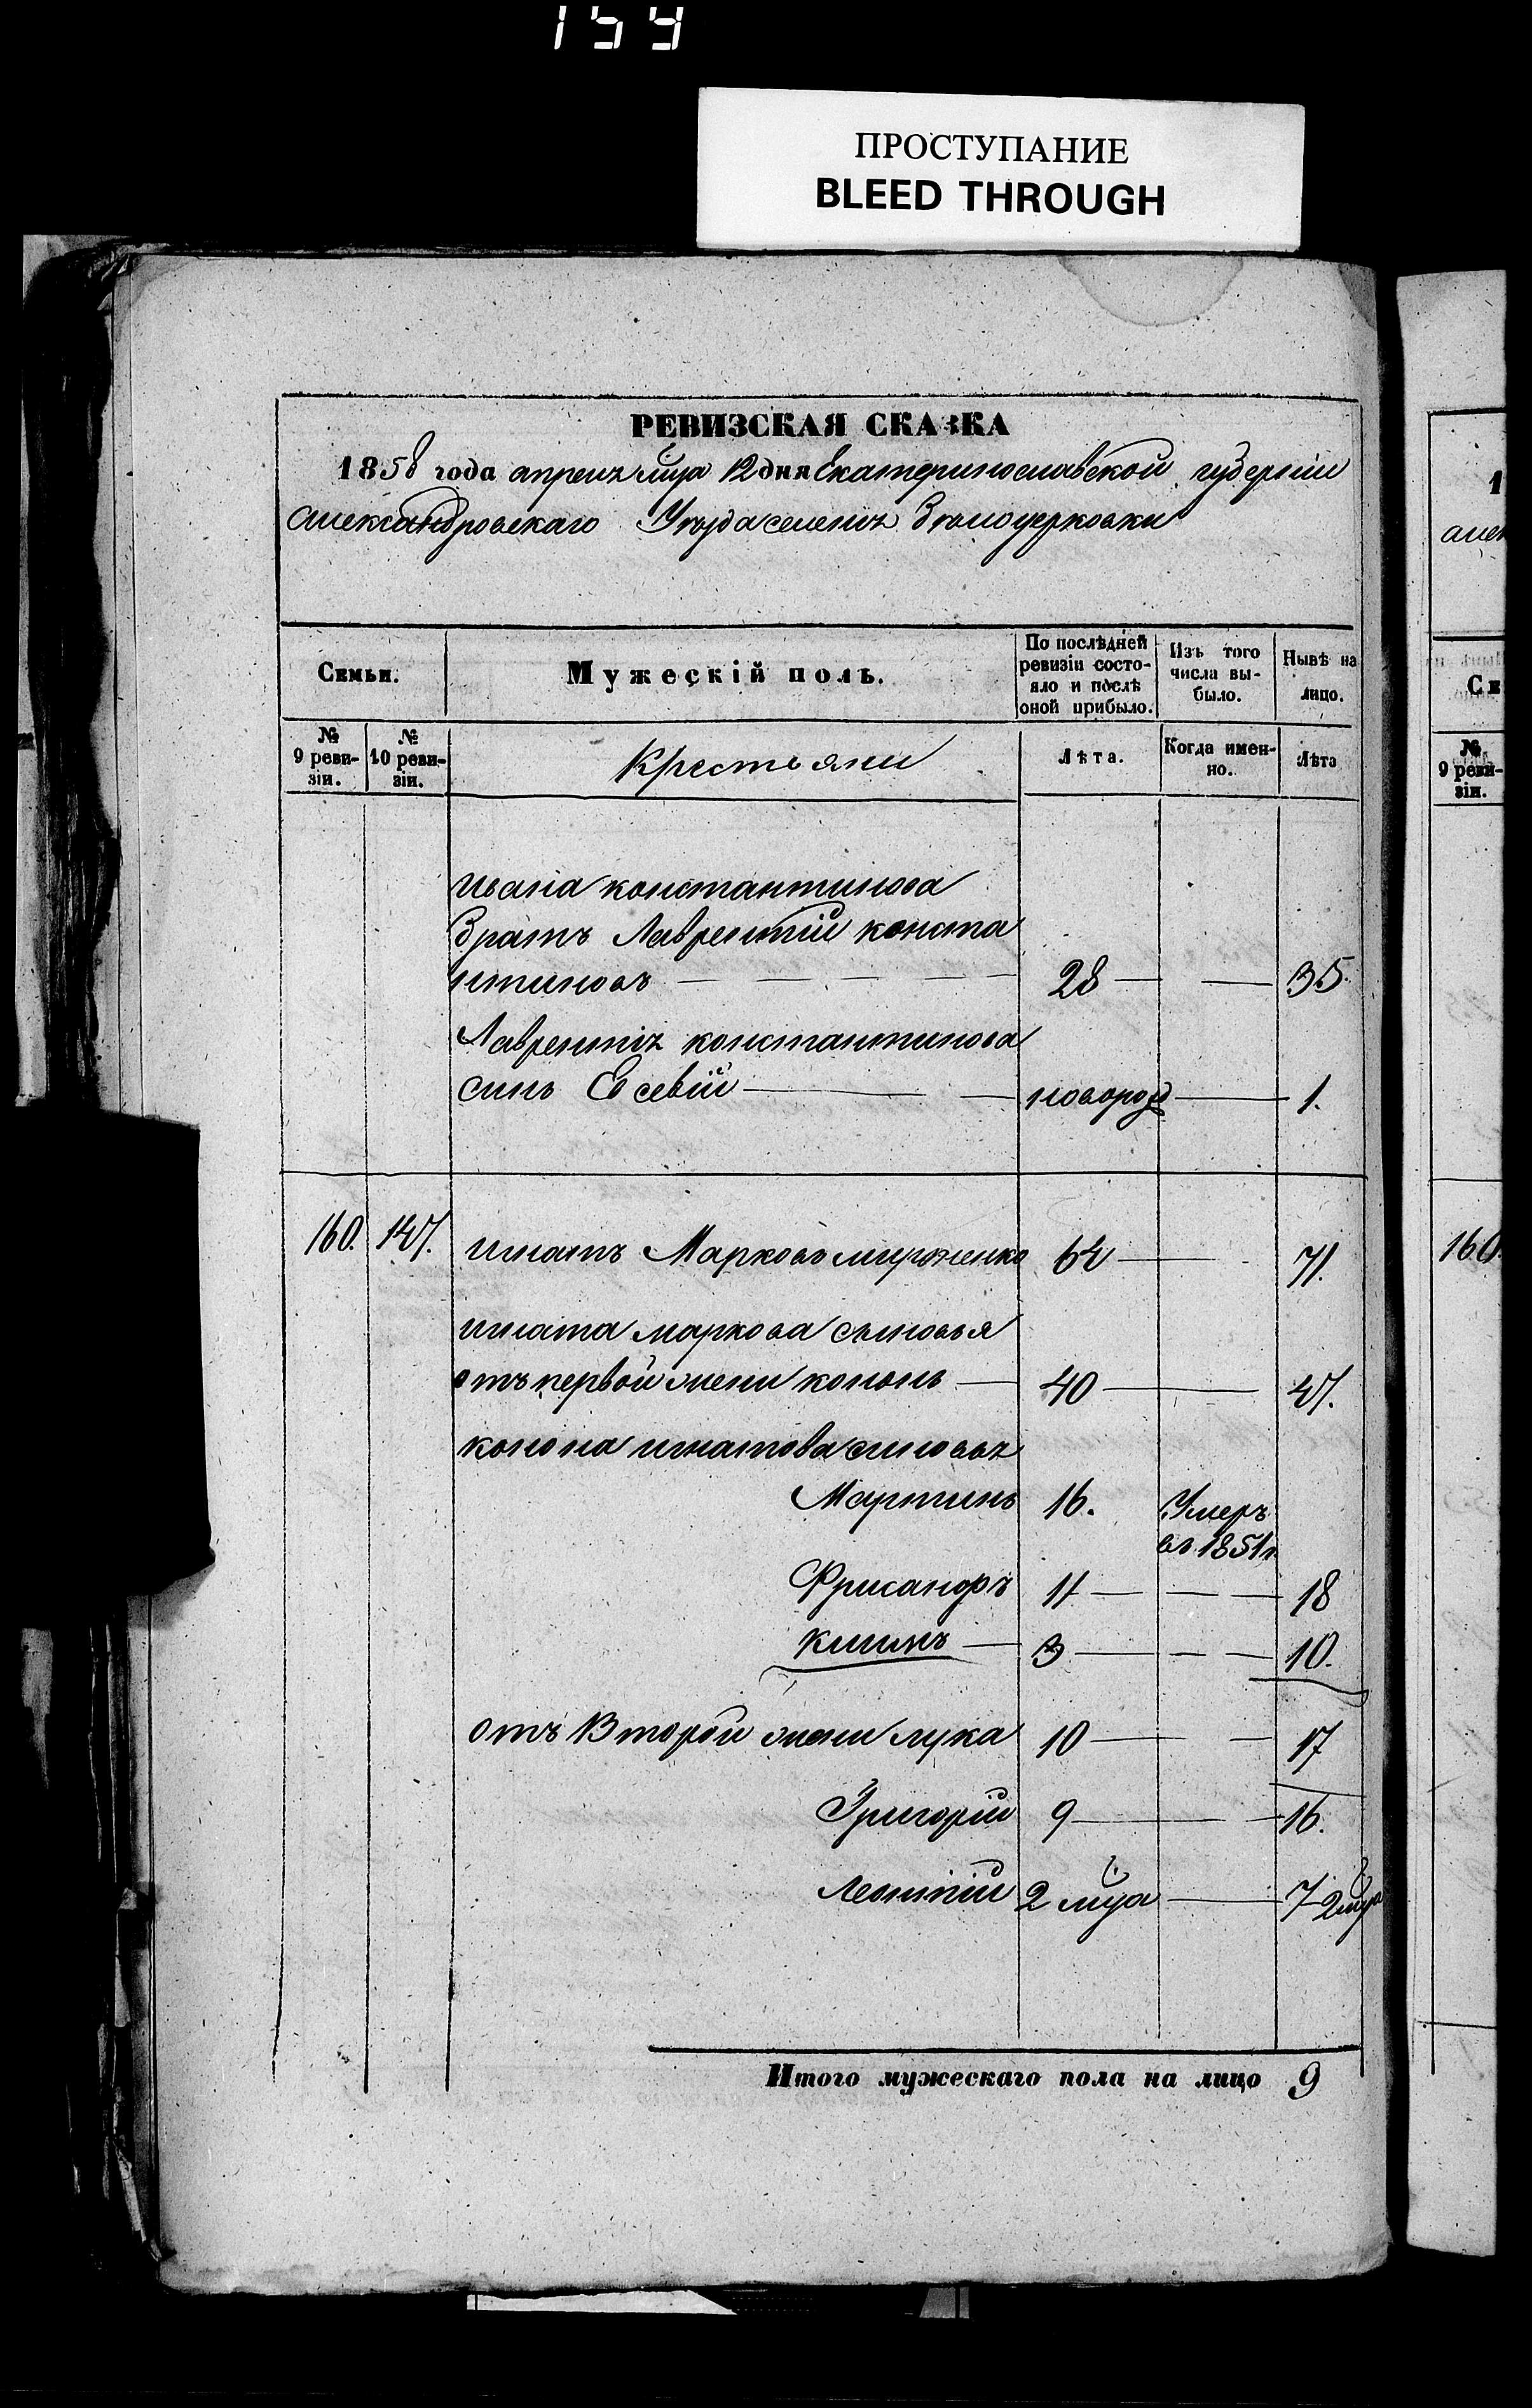 159
ПРОСТУПАНИЕ
BLEED THROUGH
РЕВИЗСКАЯ СКАЗКА
1858 года апреля мца 12 дня Екатеринославской губернии
александровскаго Уезда селения Белоцерковки
Семьи.
Мужескій полъ.
По послѣдней ревизіи состо-
яло и послѣ оной прибыло.
Изъ того числа вы-
было.
Нынѣ на лицо.
№ 9 реви-
зіи.
№ 10 реви-
зіи.
Крестьяни
Лѣта.
Когда имен-
но.
Лѣта
ивана константинова
братъ Лаврентій конста
нтиновъ 28 35.
Лаврентія константинова
синъ Евсевій новорожд 1.
160. 147. игнатъ Марковъ мироненко 64 71.
игната маркова сыновья
отъ первой жени кононъ 40 47.
конона игнатова синовья
Мартинъ 16. Умеръ
въ 1851 г.
Фрисанфъ 11 18
климъ 3 10.
отъ Второй жени лука 10 17
Григорій 9 16.
Леонтій 2 мца 7 2 мца
Итого мужескаго пола на лицо 9
1
алек
Се
№ 9 реви-
зіи.
160.